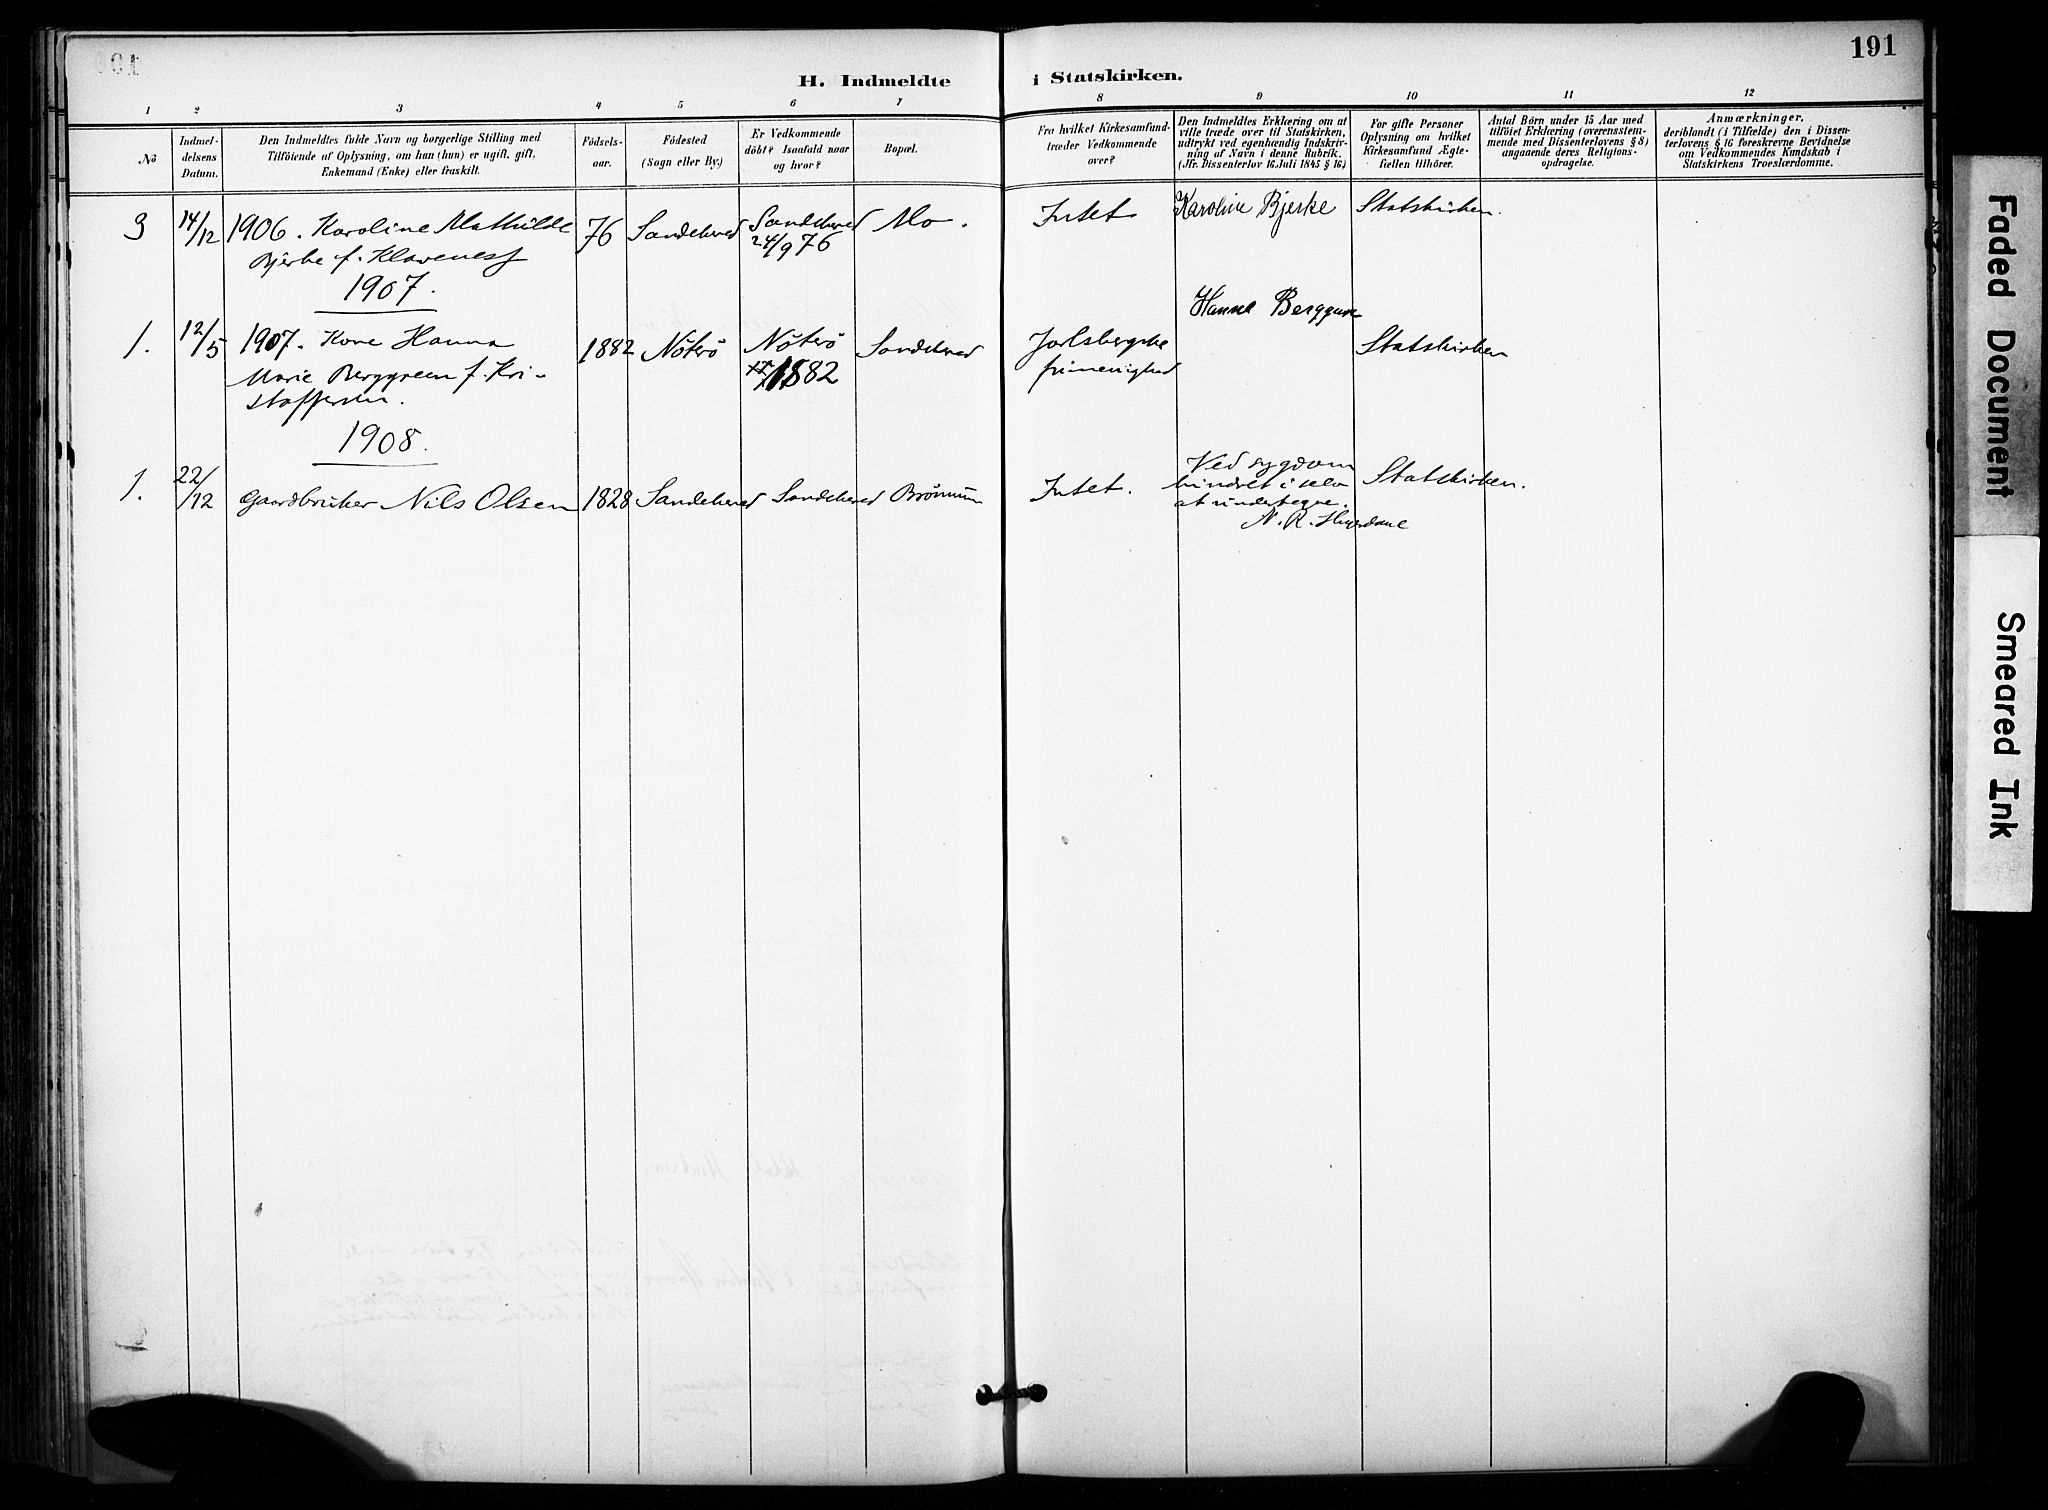 191
H. Indmeldte i Statskirken.
1 2 3 4 5 6 7 8 9 10 11 12
No
Indmel-
delsens
Datum.
Den Indmeldtes fulde Navn og borgerlige Stilling med
Tilföiende af Oplysning, om han (hun) er ugift, gift,
Enkemand (Enke) eller fraskilt.
Födsels-
aar.
Födested
(Sogn eller By.)
Er Vedkommende
döbt? Isaafald naar
og hvor?
Bopæl.
Fra hvilket Kirkesamfund
træder Vedkommende
over?
Den Indmeldtes Erklæring om at
ville træde over til Statskirken,
udtrykt ved egenhændig Indskriv-
ning af Navn i denne Rubrik.
(Jfr. Dissenterlov 16. Juli 1845 § 16)
For gifte Personer
Oplysning om hvilket
Kirkesamfund Ægte-
fællen tilhörer.
Antal Börn under 15 Aar med
tilföiet Erklæring (overensstem-
mende med Dissenterlovens § 8)
angaaende deres Religions-
opdragelse.
Anmærkninger,
deriblandt (i Tilfælde) den i Dissen-
terlovens § 16 foreskrevne Bevidnelse
om Vedkommendes Kundskab i
Statskirkens Troeslærdomme.
3 14/12 1906. Karoline Mathilde 76 Sandeherred Sandeherred Mo. Intet Karoline Bjerke Statskirken.
Bjerke f. Klavenes 24/9 76
1907.
Hanna Berggren
1. 12/5 1907. Kone Hanna 1882 Nöterö Nöterö Sandeherred Jarlsbergske Statskirken
Marie Berggreen f. Kri- 1882 frimenighed
stoffersen.
1908.
1. 22/12 Gaardbruker Nils Olsen 1828 Sandeherred Sandeherred Intet. Ved sygdom Statskirken.
hindret i selv
at undertegne.
N. R.
Faded Document
Smeared Ink